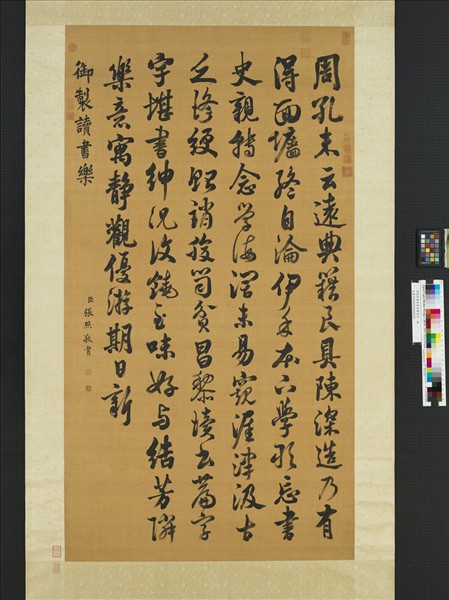 周孔未云遠典籍良具陳深造乃有
得面牆終自淪伊予本下學敢忘書
史親轉念學海深未易窺涯津汲古
乏修綆貽誚腹笥貧昌黎讀書篇字
字堪書紳況復饒至味好與結芳隣
樂意寓靜觀優游期日新
御製讀書樂
臣張照敬書